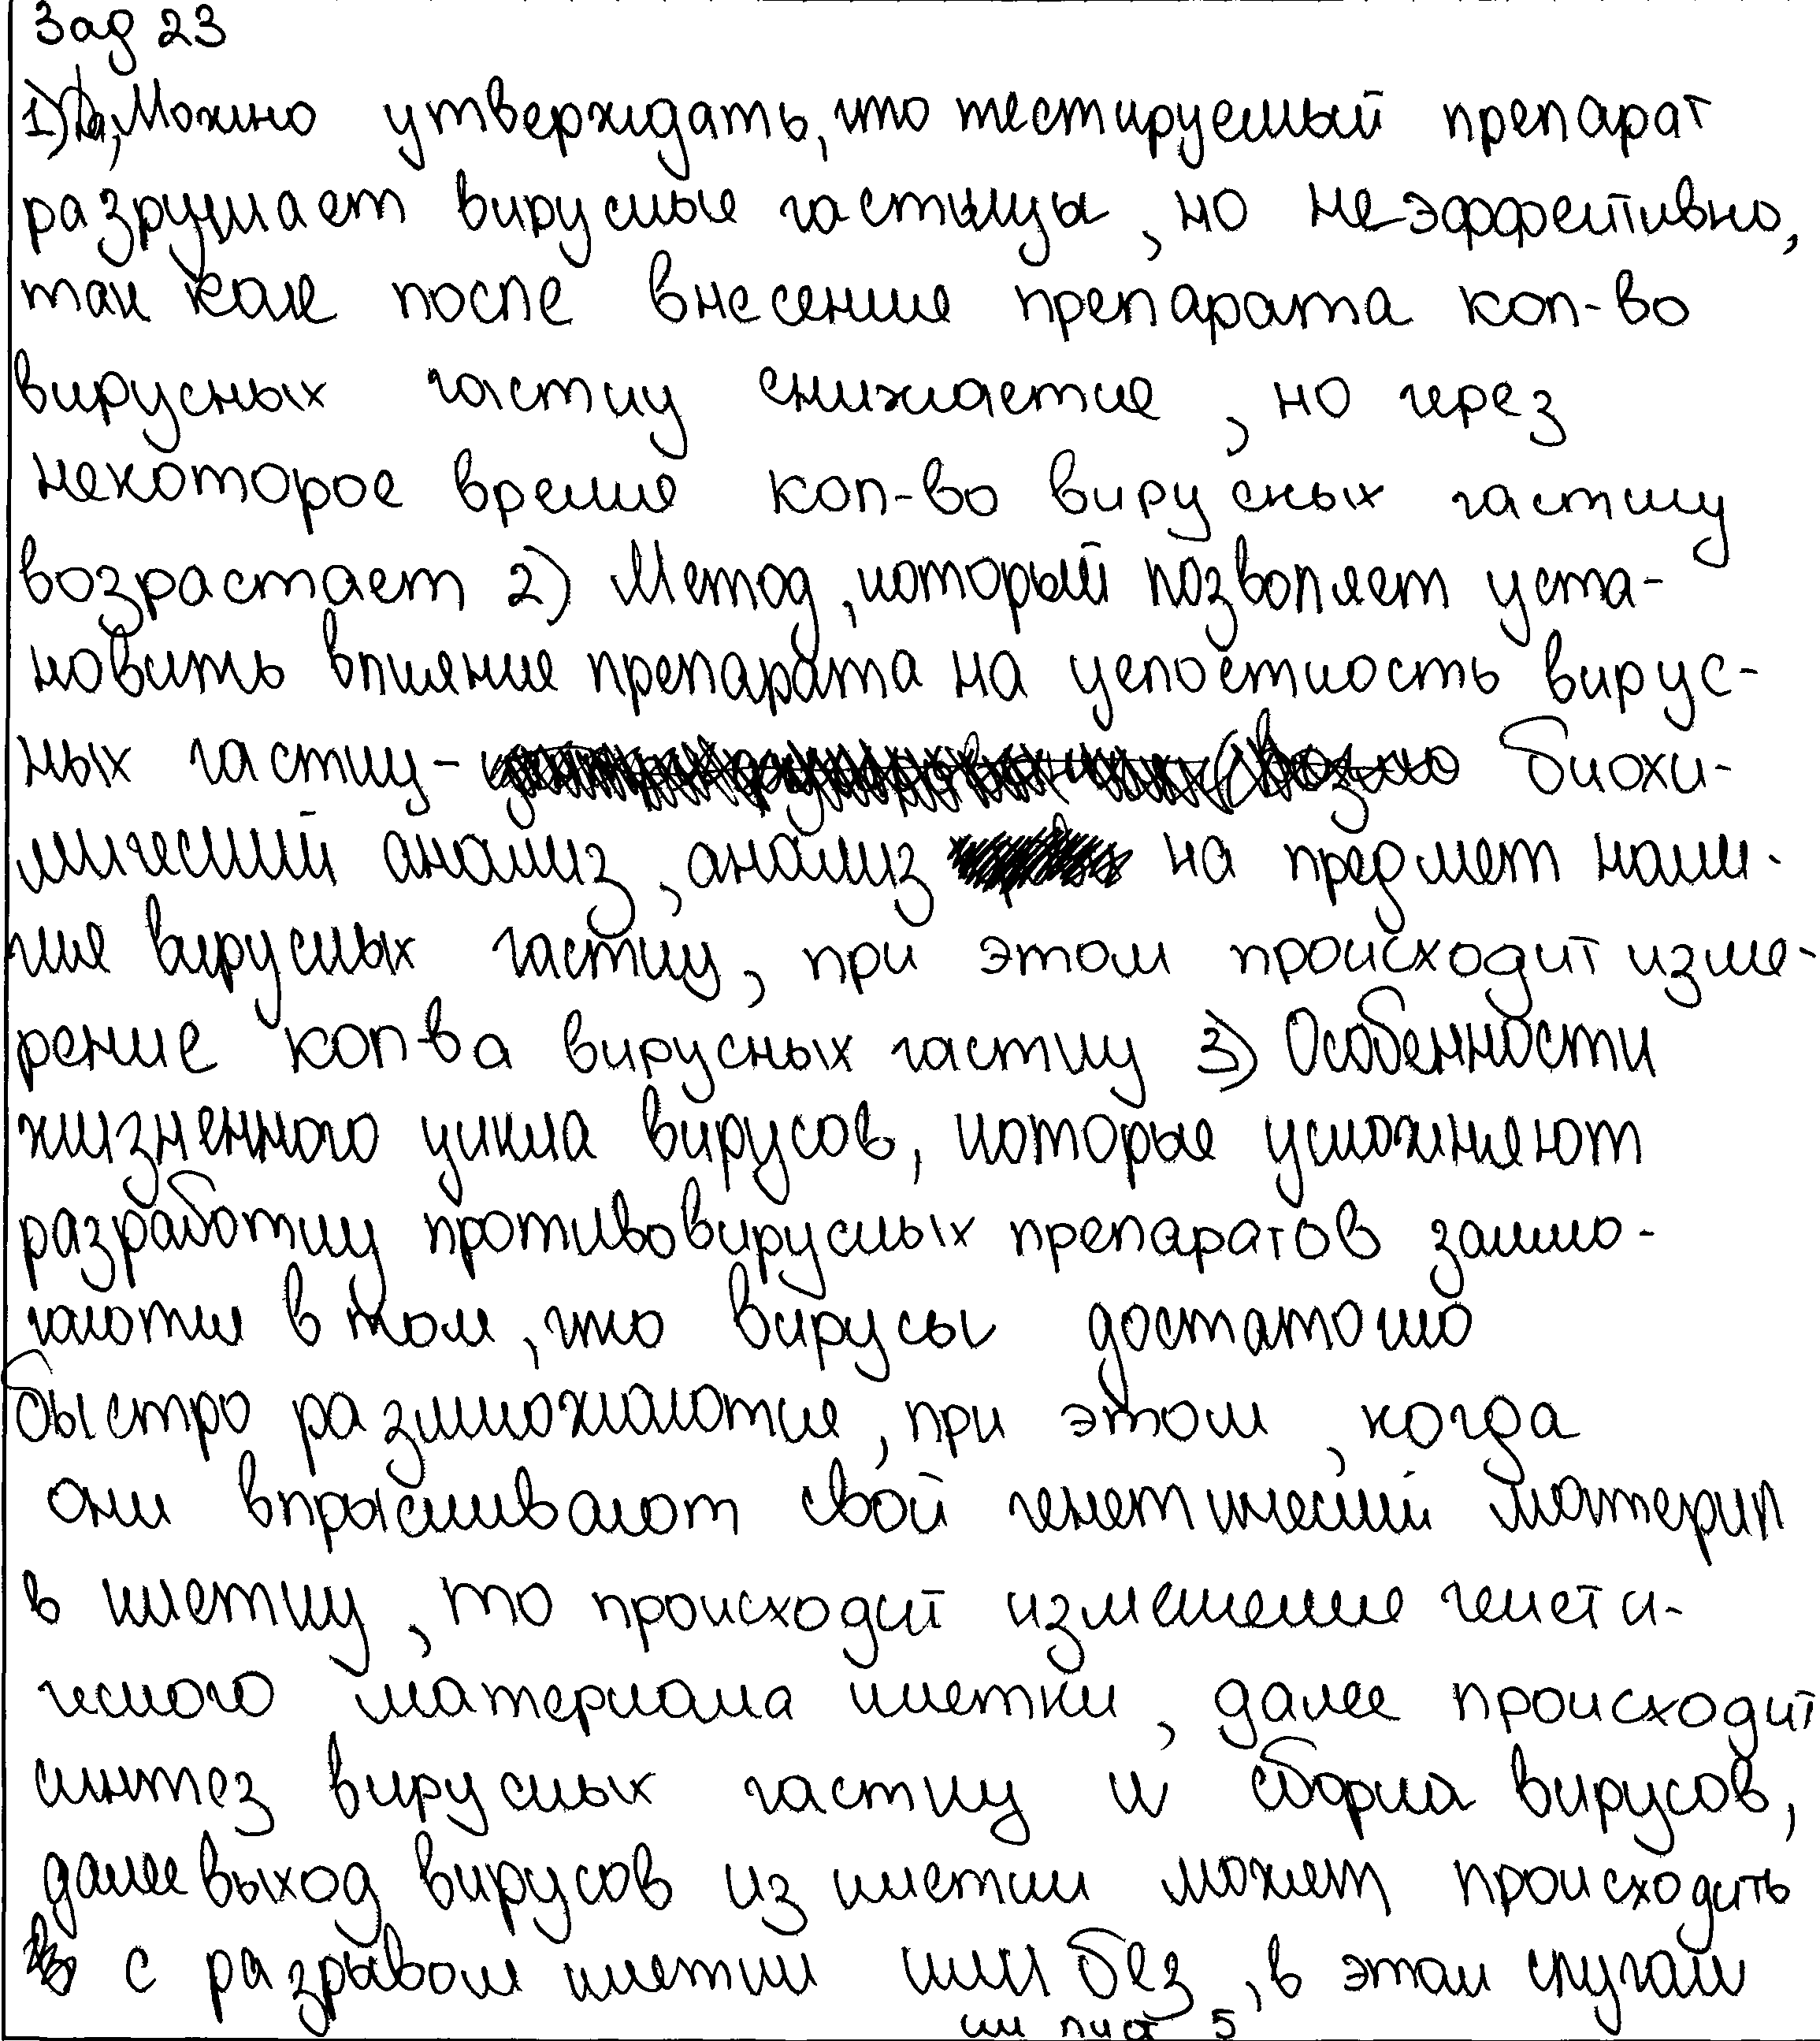 Зад 23
1) Да, Можно утверждать, что тестируемый препарат
разрушает вирусные частицы, но не эффективно,
так как после внесения препарата кол-во
вирусных частиц снижается, но через
некоторое время кол-во вирусных частиц
возрастает 2) Метод, который позволяет уста-
новить влияние препарата на целостность вирус-
ных частиц - биохи-
мический анализ, анализ на предмет нали-
чия вирусных частиц, при этом происходит изме-
рение кол-ва вирусных частиц 3) Особенности
жизненного цикла вирусов, которые усложняют
разработку противовирусных препаратов заклю-
чаются в том, что вирусы достаточно
быстро размножаются, при этом, когда
они впрыскивают свой генетический материл
в клетку, то происходит изменение генети-
ческого материала клетки, далее происходит
синтез вирусных частиц и сборка вирусов,
далее выход вирусов из клетки может происходить
с разрывом клетки или без, в этом случаи
см лист 5